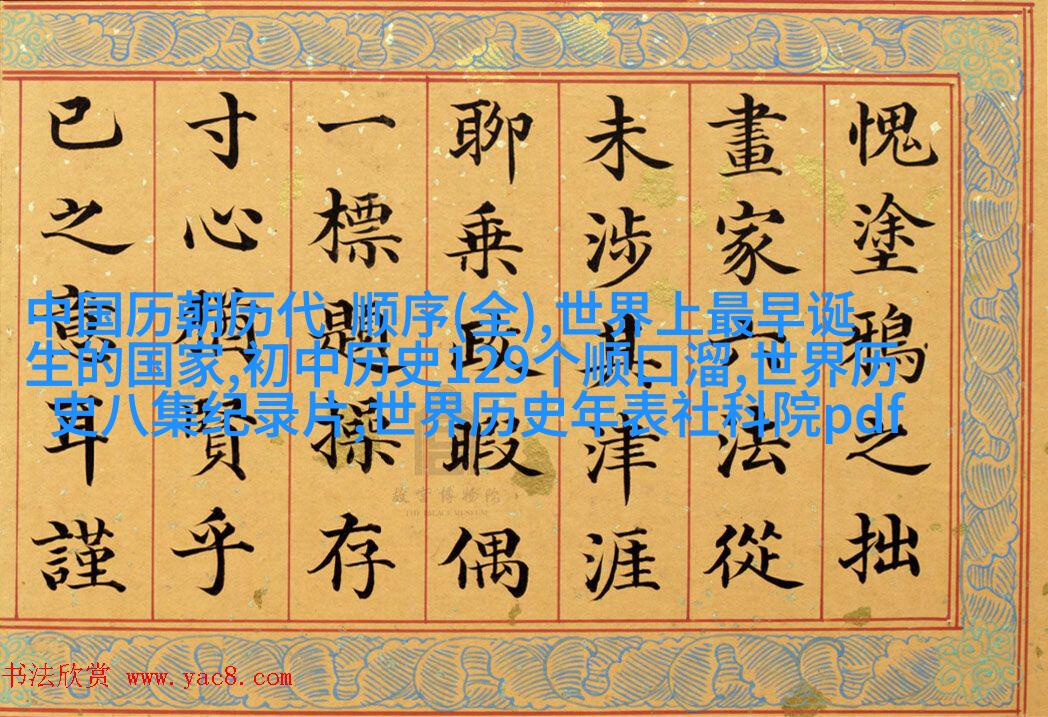 愧塗鴉之拙
畫家六法從
未涉其津涯
聊乗政暇偶
一標題操存
寸心乎
已之耳謹
中国历朝历代 顺序(全),世界上最早诞
生的国家,初中历史129个顺口溜,世界历
史八集纪录片,世界历史年表社科院pdf
故宫博物院
THE PALACE MUSEUM
书法欣赏 www.yac8.com